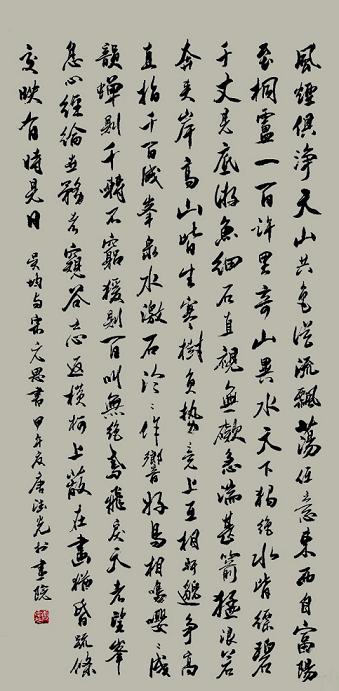 風煙俱淨天山共色從流飄蕩任意東西自富陽
至桐廬一百許里奇山異水天下獨絕水皆縹碧
千丈見底游魚細石直視無礙急湍甚箭猛浪若
奔夾岸高山皆生寒樹負勢競上互相軒邈爭高
直指千百成峯泉水激石泠〻作響好鳥相鳴嚶〻成
韻蟬則千轉不窮猿則百叫無絕鳶飛戾天者望峯
息心經綸世務者窺谷忘返橫柯上蔽在晝猶昏疏條
交映有時見日 吳均与宋元思書 甲午夏唐法光於畫院